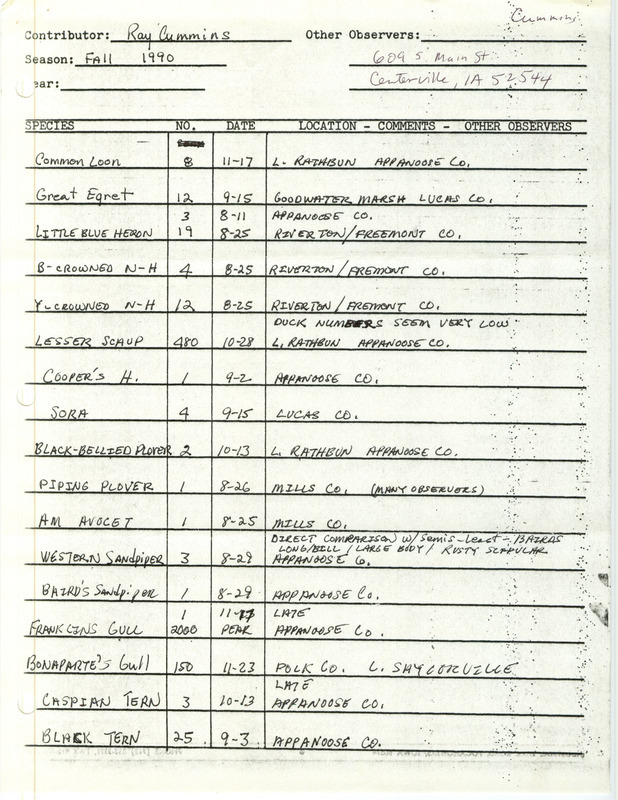 Cummins
Contributor: Ray Cummins Other Observers:
Season: Fall 1990 609 S. Main St
ear: Centerville, IA 52544
SPECIES NO. DATE LOCATION - COMMENTS - OTHER OBSERVERS
Common Loon 8 11-17 L. RATHBUN APPANOOSE CO.
Great Egret 12 9-15 GOODWATER MARSH LUCAS CO.
3 8-11 APPANOOSE CO.
LITTLE BLUE HERON 19 8-25 RIVERTON/FREEMONT CO.
B-CROWNED N-H 4 8-25 RIVERTON/FREMONT CO.
Y-CROWNED N-H 12 8-25 RIVERTON/FREMONT CO.
DUCK NUMBERS SEEM VERY LOW
LESSER SCAUP 480 10-28 L. RATHBUN APPANOOSE CO.
COOPER'S H. 1 9-2 APPANOOSE CO.
SORA 4 9-15 LUCAS CO.
BLACK-BELLIED PLOVER 2 10-13 L. RATHBUN APPANOOSE CO.
PIPING PLOVER 1 8-26 MILLS CO. (MANY OBSERVERS)
AM AVOCET 1 8-25 MILLS CO.
DIRECT COMPARISON W/ Semis-Least-BAIRDS
LONG/BILL / LARGE BODY / RUSTY SCAPULAR
WESTERN Sandpiper 3 8-29 APPANOOSE Co.
BAIRD'S Sandpiper 1 8-29 APPANOOSE Co.
1 11-17 LATE
FRANKLINS GULL 2000 PEAK APPANOOSE Co.
BONAPARTE'S Gull 150 11-23 POLK CO. L. SAYLORVILLE
LATE
CASPIAN TERN 3 10-13 APPANOOSE CO.
BLACK TERN 25 9-3 APPANOOSE CO.